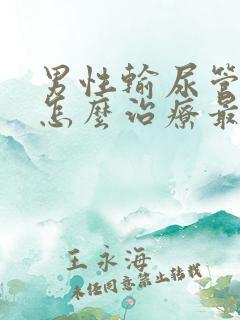 男性輸尿管
怎麼治療最
王永海
未经同意禁止转载